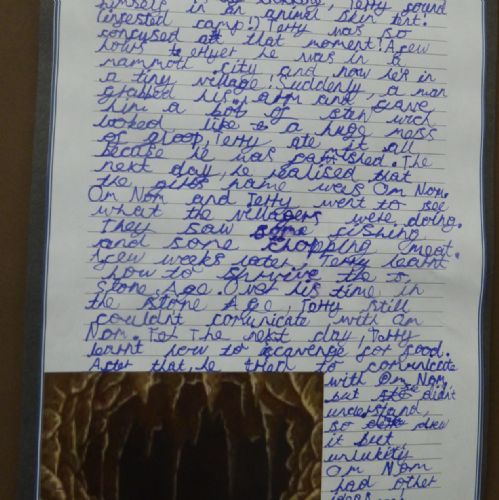 himself in an animal skin tent.
infested camp! Terry was so
confused at that moment! A few
hours erlyer he was in a
mammoth city and now is in
a tiny village! Suddenly, a man
grabbed his arm and gave
him a bot of stew wich
looked like a huge mess
of gloop, Terry ate it all
becuse he was famished. The
next day, he realised that
the girls name was Om Nom.
Om Nom and Terry went to see
what the villagers were doing.
They saw some fishing
and some chopping meat.
A few weeks later, Terry learnt
how to survive the s
Stone Age. Over his time in
the Stone Age, Terry still
couldnt comunicate with Om
Nom. The next day, Terry
learnt how to scavenge for food.
After that, he tried to comunicate
with Om Nom,
but she didnt
understand,
so drew
it but
unlukity
Om Nom
had other
ideas